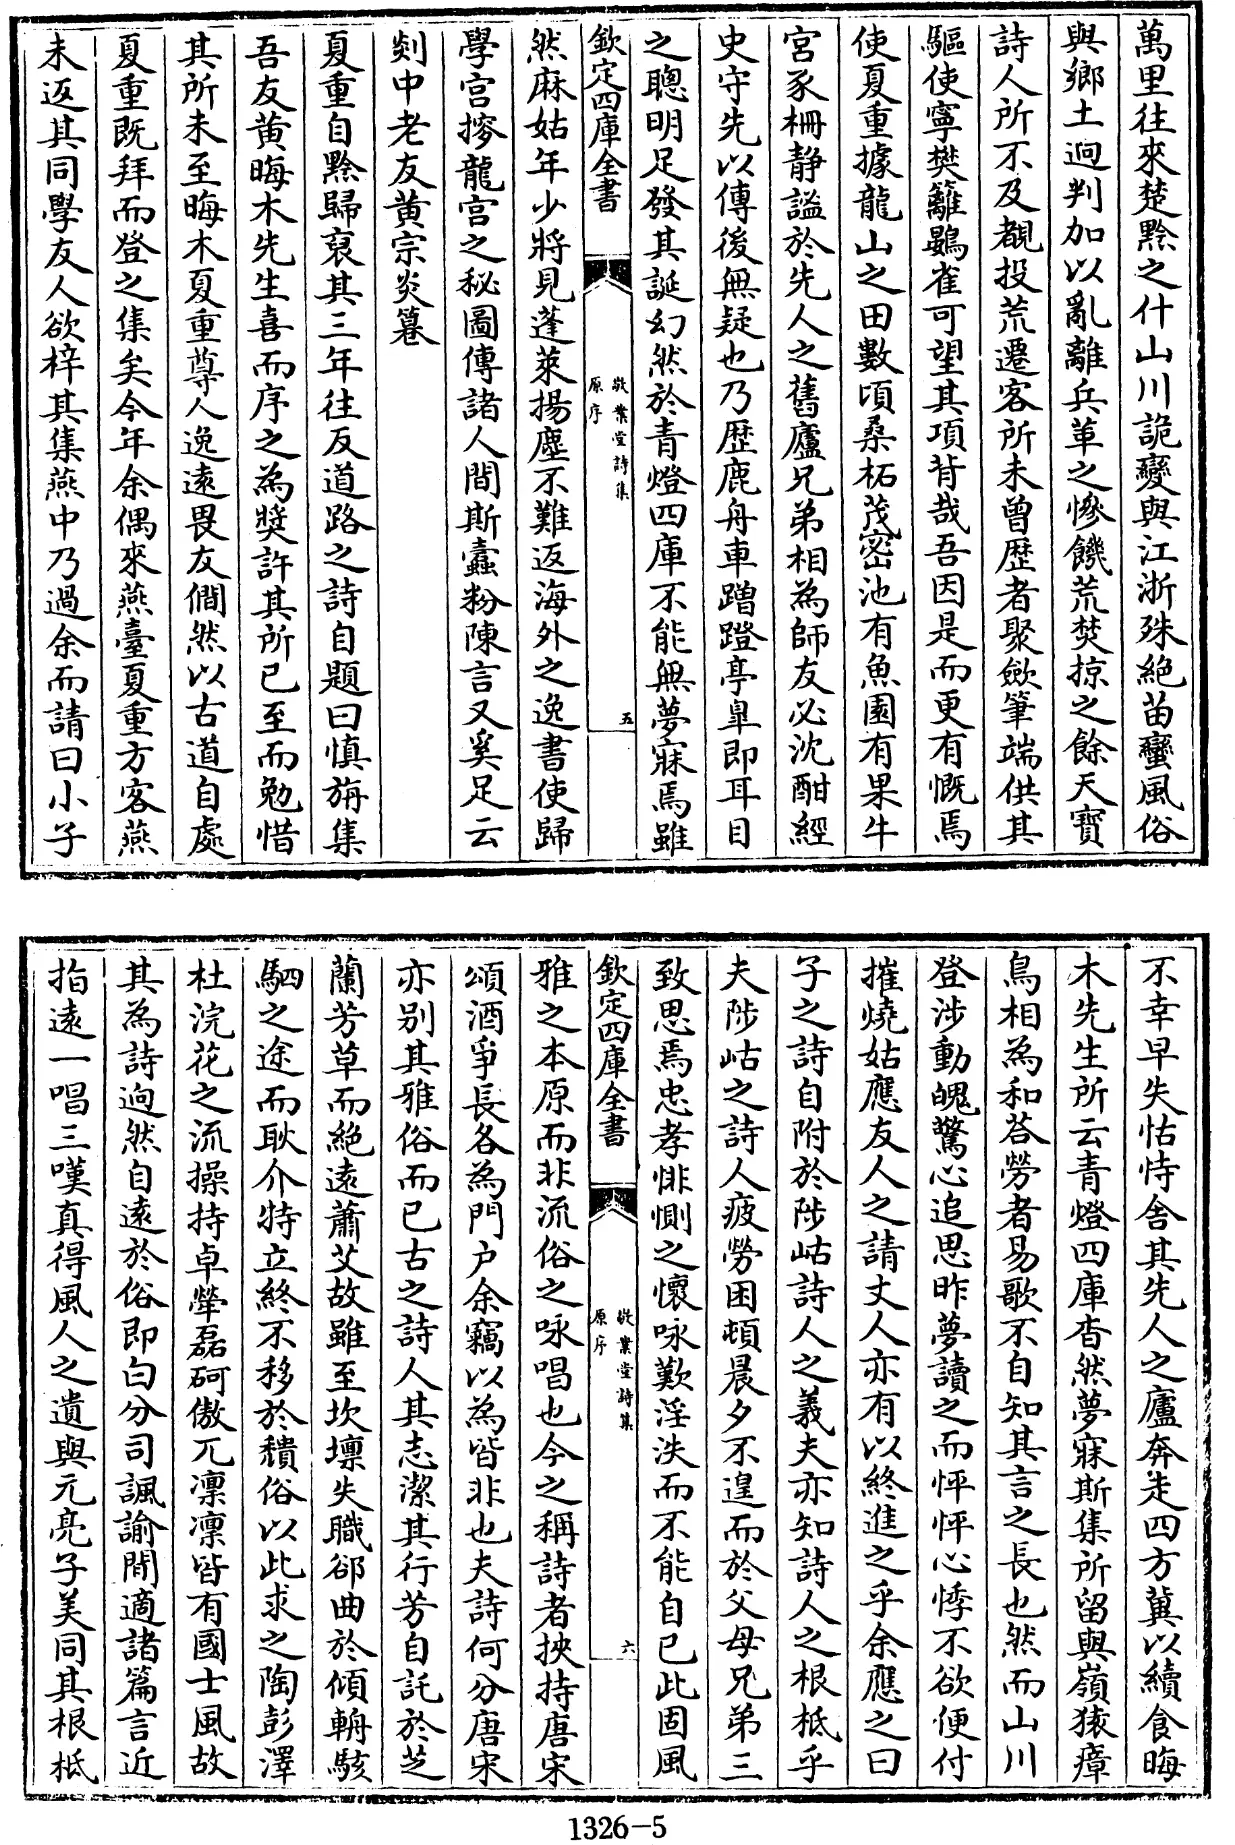 萬里往來楚黔之什山川詭變與江浙殊絶苗蠻風俗
與鄉土迥判加以亂離兵革之慘饑荒焚掠之餘天寳
詩人所不及覩投荒遷客所未曾歴者聚斂筆端供其
驅使寧樊籬鷃雀可望其項背哉吾因是而更有慨焉
使夏重據龍山之田數頃桑柘茂密池有魚園有果牛
宫豕柵静謐於先人之舊廬兄弟相為師友必沈酣經
史守先以傳後無疑也乃歴鹿舟車蹭蹬亭臯即耳目
之聰明足發其誕幻然於青燈四庫不能無夢寐焉雖
欽定四庫全書
敬業堂詩集
原序
五
然麻姑年少將見蓬萊揚塵不難返海外之逸書使歸
學宫摉龍宫之秘圖傳諸人間斯蠧粉陳言又奚足云
剡中老友黄宗炎篹
夏重自黔歸裒其三年往反道路之詩自題曰慎旃集
吾友黄晦木先生喜而序之為奬許其所已至而勉惜
其所未至晦木夏重尊人逸遠畏友僩然以古道自處
夏重既拜而登之集矣今年余偶來燕臺夏重方客燕
未返其同學友人欲梓其集燕中乃過余而請曰小子
不幸早失怙恃舍其先人之廬奔走四方冀以續食晦
木先生所云青燈四庫杳然夢寐斯集所留與嶺猿瘴
鳥相為和荅勞者易歌不自知其言之長也然而山川
登涉動魄驚心追思昨夢讀之而怦怦心悸不欲便付
摧燒姑應友人之請丈人亦有以終進之乎余應之曰
子之詩自附於陟岵詩人之義夫亦知詩人之根柢乎
夫陟岵之詩人疲勞困頓晨夕不遑而於父母兄弟三
致思焉忠孝悱惻之懷咏歎淫泆而不能自已此固風
欽定四庫全書
敬業堂詩集
原序
六
雅之本原而非流俗之咏唱也今之稱詩者挾持唐宋
頌酒爭長各為門户余竊以為皆非也夫詩何分唐宋
亦别其雅俗而已古之詩人其志潔其行芳自託於芝
蘭芳草而絶遠蕭艾故雖至坎壈失職郤曲於傾輈駭
駟之途而耿介特立終不移於穨俗以此求之陶彭澤
杜浣花之流操持卓犖磊砢傲兀凛凛皆有國士風故
其為詩逈然自遠於俗即白分司諷諭閒適諸篇言近
指遠一唱三嘆真得風人之遺與元亮子美同其根柢
1326-5